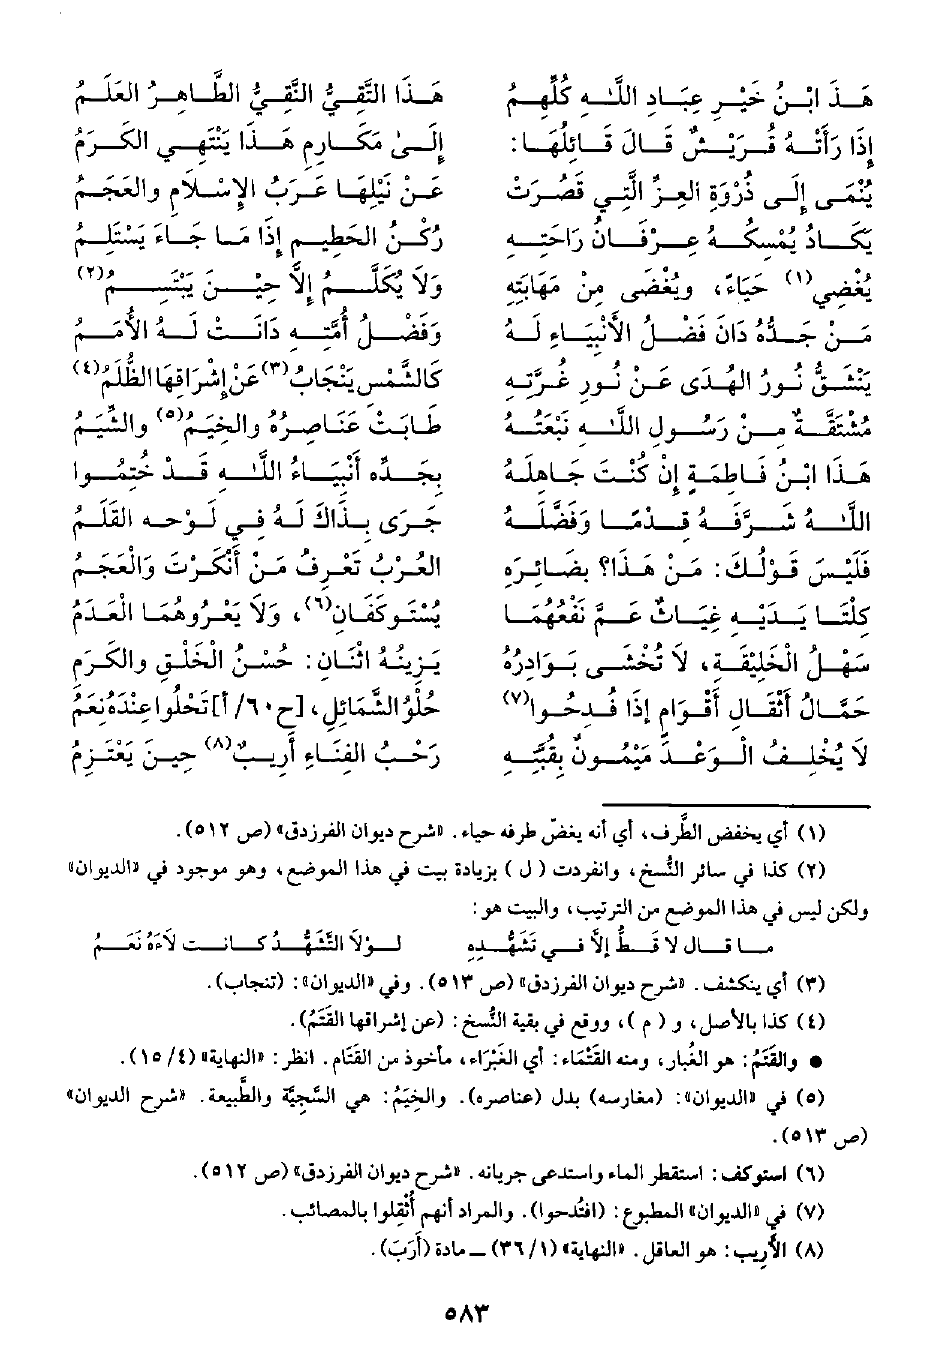 هَـذَا ابْـنُ خَيْـرِ عِبَـادِ اللَّـهِ كُلِّهِـمُ هَـذَا التَّقِـيُّ النَّقِـيُّ الطَّـاهِـرُ العَلَـمُ
إِذَا رَأَتْـهُ قُـرَيْـشٌ قَـالَ قَـائِلُهَـا: إِلَـى مَكَـارِمِ هَـذَا يَنْتَهِـي الكَـرَمُ
يُنْمَى إِلَى ذُرْوَةِ العِزِّ الَّتِي قَصُرَتْ عَـنْ نَيْلِهَـا عَـرَبُ الإِسْـلَامِ والعَجَـمُ
يَكَـادُ يُمْسِكُـهُ عِـرْفَـانُ رَاحَتِـهِ رُكْـنُ الحَطِيْـمِ إِذَا مَـا جَـاءَ يَسْتَلِـمُ
يُغْضِي(١) حَيَاءً، ويُغْضَى مِنْ مَهَابَتِهِ وَلَا يُكَلَّـمُ إِلَّا حِيْـنَ يَبْتَسِـمُ(٢)
مَـنْ جَـدُّهُ دَانَ فَضْـلُ الأَنْبِيَـاءِ لَـهُ وَفَضْـلُ أُمَّتِـهِ دَانَـتْ لَـهُ الأُمَـمُ
يَنْشَـقُّ نُـورُ الهُدَى عَـنْ نُـورِ غُـرَّتِـهِ كَالشَّمْسِ يَنْجَابُ(٣) عَنْ إِشْرَاقِهَا الظُّلَمُ(٤)
مُشْتَقَّـةٌ مِـنْ رَسُـولِ اللَّـهِ نَبْعَتُـهُ طَـابَـتْ عَنَاصِـرُهُ والخِيَـمُ(٥) والشِّيَـمُ
هَـذَا ابْـنُ فَـاطِمَـةٍ إِنْ كُنْـتَ جَـاهِلَـهُ بِجَـدِّهِ أَنْبِيَـاءُ اللَّـهِ قَـدْ خُتِمُـوا
اللَّـهُ شَـرَّفَـهُ قِـدْمًـا وَفَضَّلَـهُ جَـرَى بِـذَاكَ لَـهُ فِـي لَـوْحِـهِ القَلَـمُ
فَلَيْـسَ قَـوْلُـكَ: مَـنْ هَـذَا؟ بِضَـائِـرِهِ العُرْبُ تَعْرِفُ مَـنْ أَنْكَرْتَ وَالْعَجَـمُ
كِلْتَـا يَـدَيْـهِ غِيَـاثٌ عَـمَّ نَفْعُهُمَـا يُسْتَوكَفَانِ(٦)، وَلَا يَعْـرُوهُمَـا العَدَمُ
سَهْـلُ الْخَلِيْقَـةِ، لَا تُخْشَـى بَـوَادِرُهُ يَـزِيْنُـهُ اثْنَـانِ: حُسْـنُ الْخَلْقِ والكَرَمِ
حَمَّـالُ أَثْقَـالِ أَقْـوَامٍ إِذَا فُـدِحُـوا(٧) حُلْوُ الشَّمَائِلِ، [ح٦٠/أ] تَحْلُوا عِنْدَهُ نَعَمُ
لَا يُخْلِـفُ الْـوَعْـدَ مَيْمُـونٌ بِقيَّتِـهِ رَحْـبُ الفِنَـاءِ أَرِيـبٌ(٨) حِيـنَ يَعْتَـزِمُ
(١) أي يخفض الطَّرف، أي أنه يغضّ طرفه حياء. «شرح ديوان الفرزدق» (ص ٥١٢).
(٢) كذا في سائر النُّسخ، وانفردت (ل) بزيادة بيت في هذا الموضع، وهو موجود في «الديوان»
ولكن ليس في هذا الموضع من الترتيب، والبيت هو:
مـا قـال لا قـطُّ إلَّا فـي تَشَهُّـدِهِ لـولَا التَّشَهُّـدُ كـانـت لَاءَهُ نَعَـمُ
(٣) أي ينكشف. «شرح ديوان الفرزدق» (ص ٥١٣). وفي «الديوان»: (تنجاب).
(٤) كذا بالأصل، و (م)، ووقع في بقية النُّسخ: (عن إشراقها القَتَمُ).
• والقَتَمُ: هو الغُبار، ومنه القَتْمَاء: أي الغَبْرَاء، مأخوذ من القَتَام. انظر: «النهاية» (٤/ ١٥).
(٥) في «الديوان»: (مغارسه) بدل (عناصره). والخِيَمُ: هي السَّجِيَّة والطَّبيعة. «شرح الديوان»
(ص ٥١٣).
(٦) استوكف: استقطر الماء واستدعى جريانه. «شرح ديوان الفرزدق» (ص ٥١٢).
(٧) في «الديوان» المطبوع: (افتُدحوا). والمراد أنهم أُثْقِلوا بالمصائب.
(٨) الأَرِيب: هو العاقل. «النهاية» (١/ ٣٦) ـ مادة (أَرَبَ).
٥٨٣